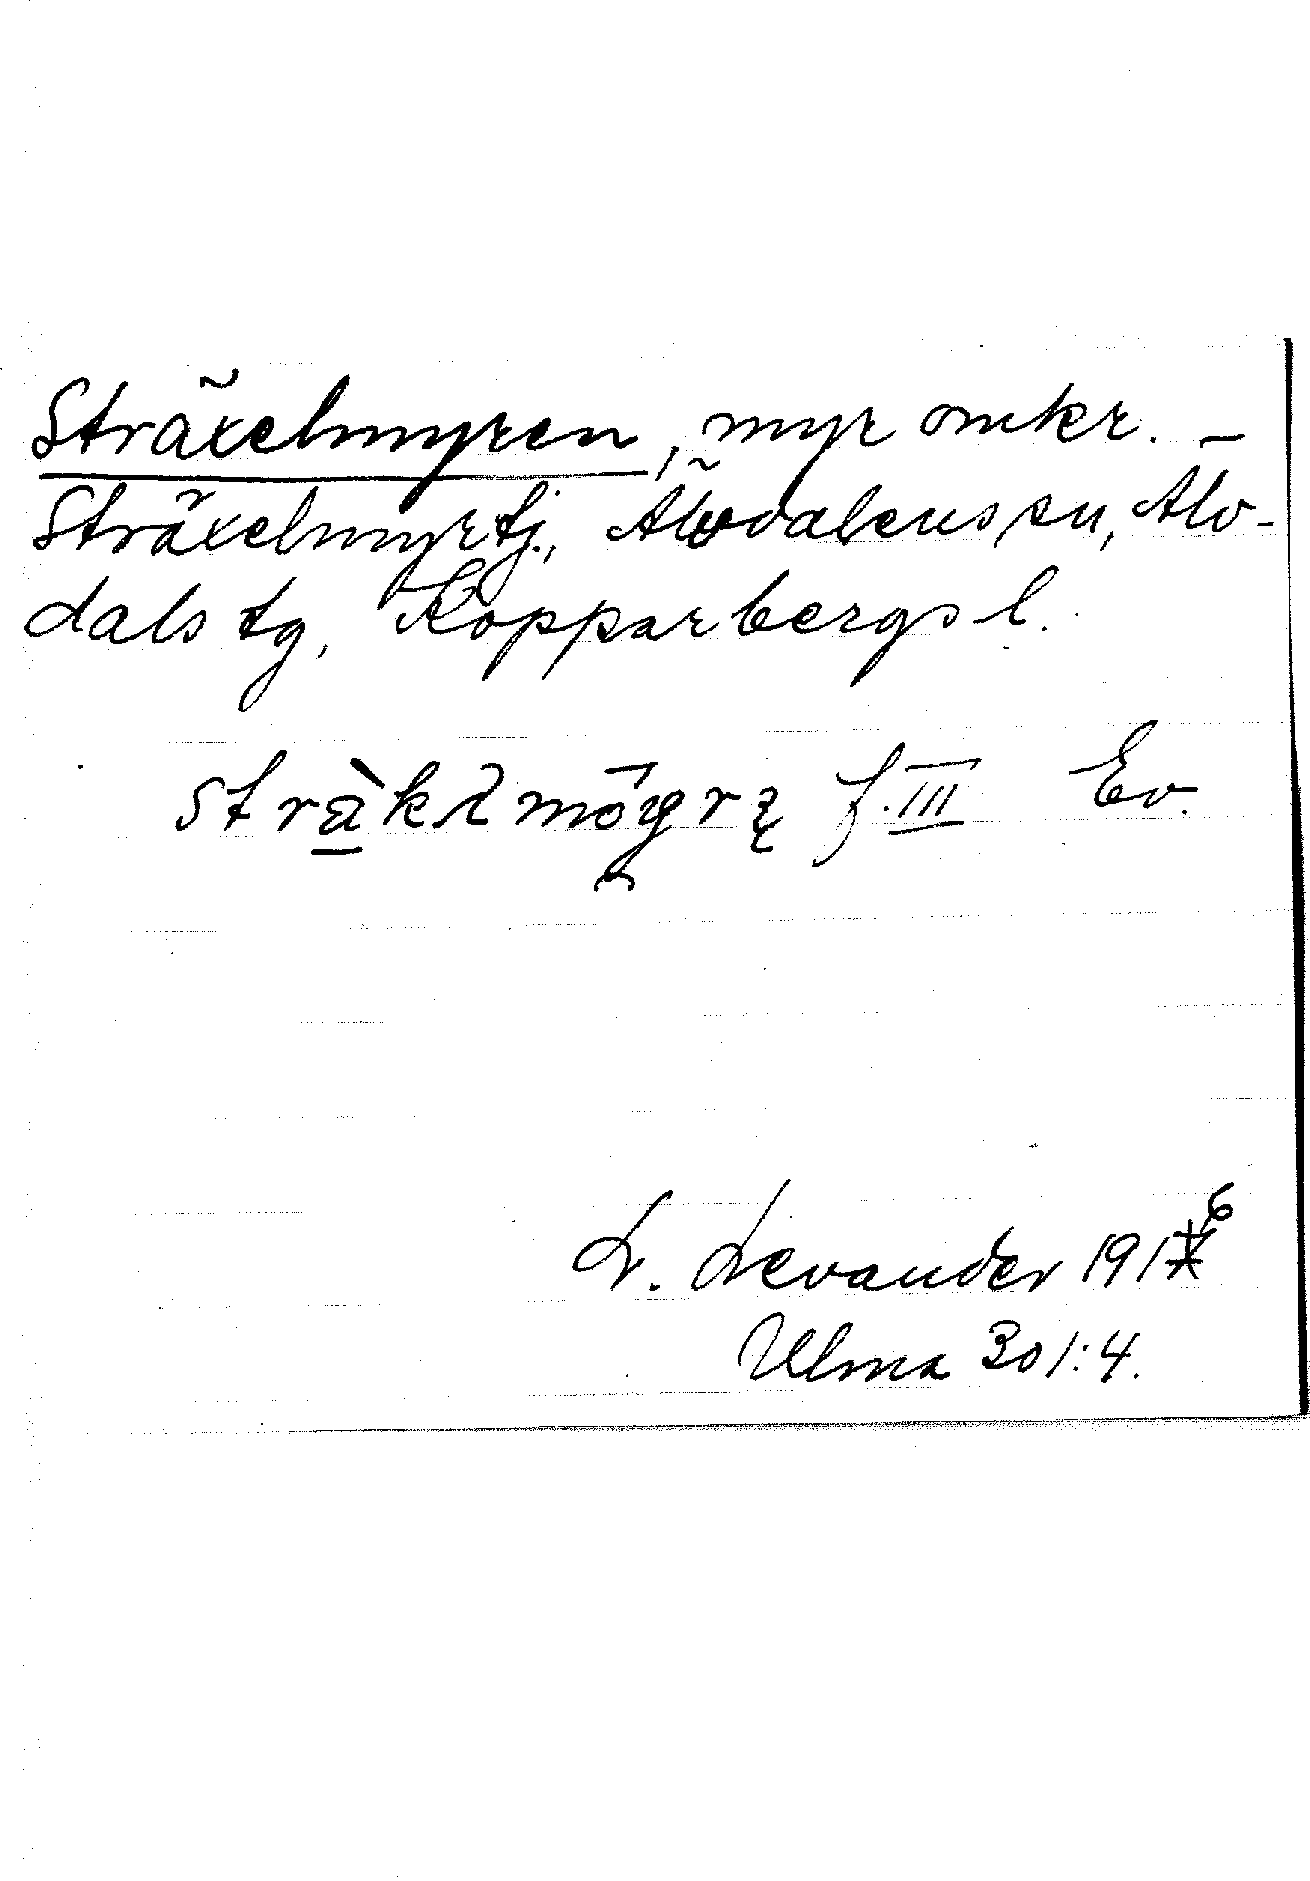 Sträxelmyren, myr omkr.
Sträxelmyrtj., Älvdalens sn, Älv-
dals tg, Kopparbergs l.
f. III Ev.
L. Levander 1916
Ulma 301:4.